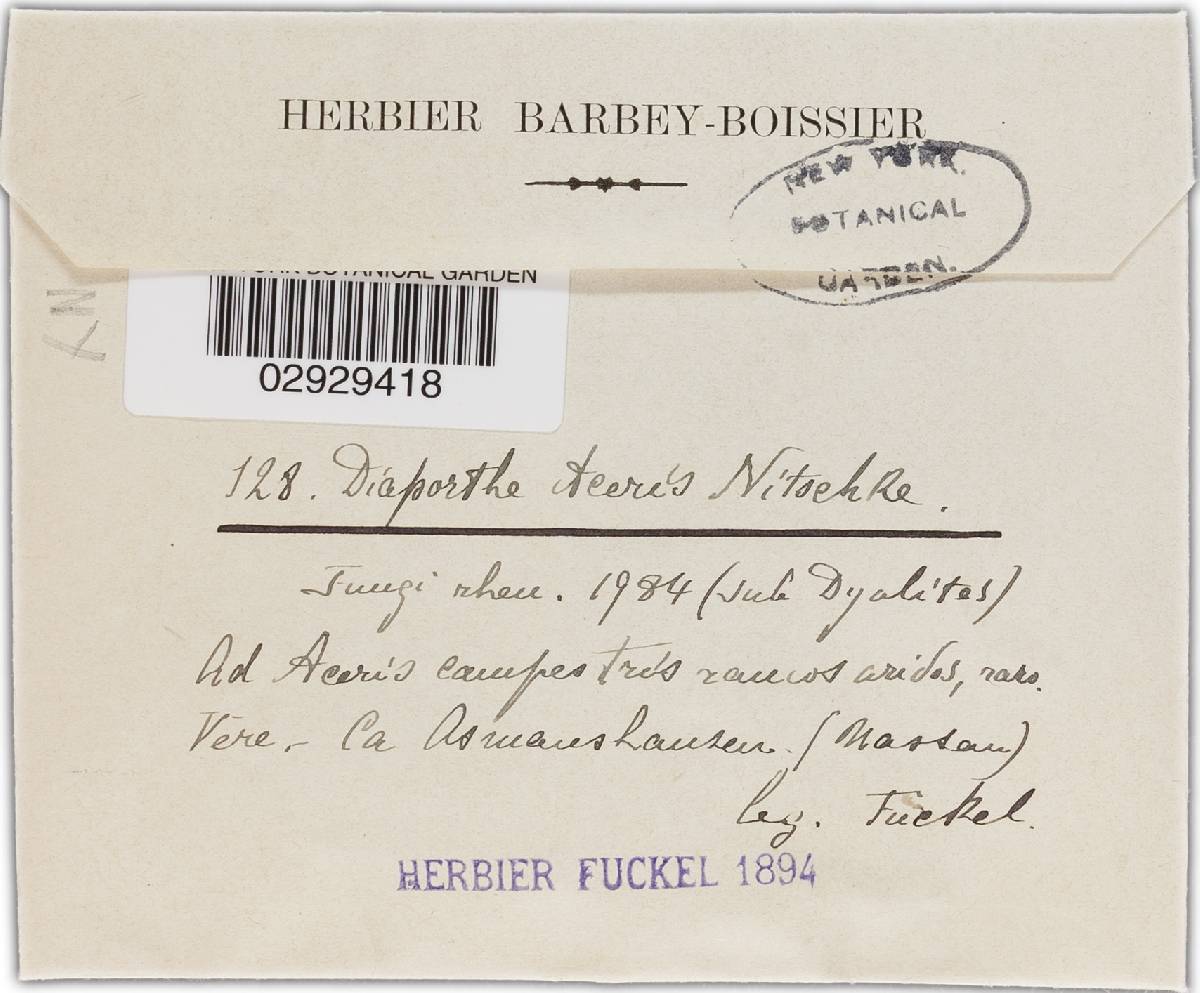 HERBIER BARBEY-BOISSIER
NEW YORK
BOTANICAL
GARDEN.
YORK BOTANICAL GARDEN
NY
02929418
128. Diaporthe Aceris Nitschke.
Fungi rhen. 1984 (sub Dyalites)
Ad Aceris campestris ramos aridos, raro.
Vere. - Ca Asmanshausen. (Nassau)
leg. Fuckel.
HERBIER FUCKEL 1894